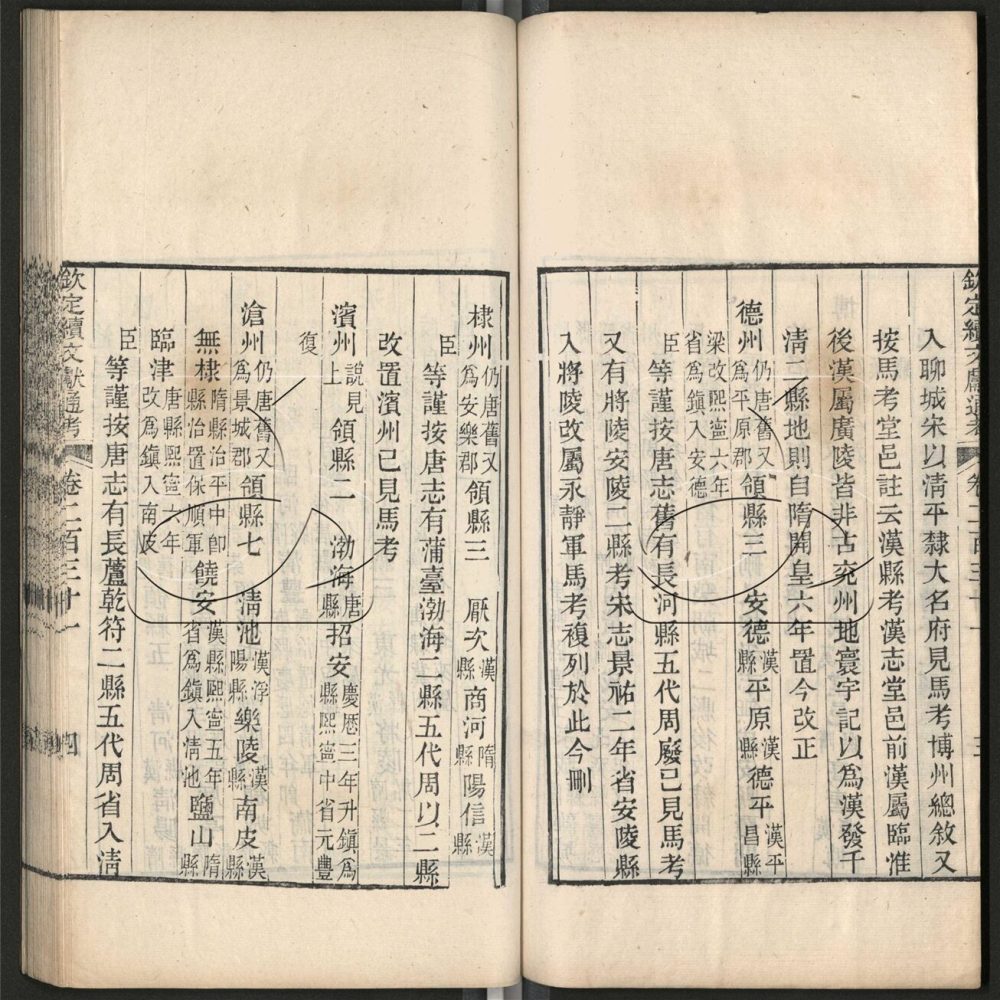 欽定續文獻通考 卷二百三十一 三
入聊城宋以淸平隸大名府見馬考博州總敘又
按馬考堂邑註云漢縣考漢志堂邑前漢屬臨淮
後漢屬廣陵皆非古兗州地寰宇記以爲漢發干
淸二縣地則自隋開皇六年置今改正
德州仍唐舊又爲平原郡領縣三 安德漢縣平原漢縣德平漢平昌縣
梁改熙寧六年省爲鎭入安德
臣等謹按唐志舊有長河縣五代周廢已見馬考
又有將陵安陵二縣考宋志景祐二年省安陵縣
入將陵改屬永靜軍馬考複列於此今刪
棣州仍唐舊又爲安樂郡領縣三 厭次漢縣商河隋縣陽信漢縣
臣等謹按唐志有蒲臺渤海二縣五代周以二縣
改置濱州已見馬考
濱州說見上領縣二 渤海唐縣招安慶厯三年升鎭爲縣熙寧中省元豐
復
滄州仍唐舊又爲景城郡領縣七 淸池漢浮陽縣樂陵漢縣南皮漢縣
無棣隋縣治平中卽縣治置保順軍饒安漢縣熙寧五年省爲鎭入淸池鹽山隋縣
臨津唐縣熙寧六年改爲鎭入南皮
臣等謹按唐志有長蘆乾符二縣五代周省入淸
欽定續文獻通考 卷二百三十一 四